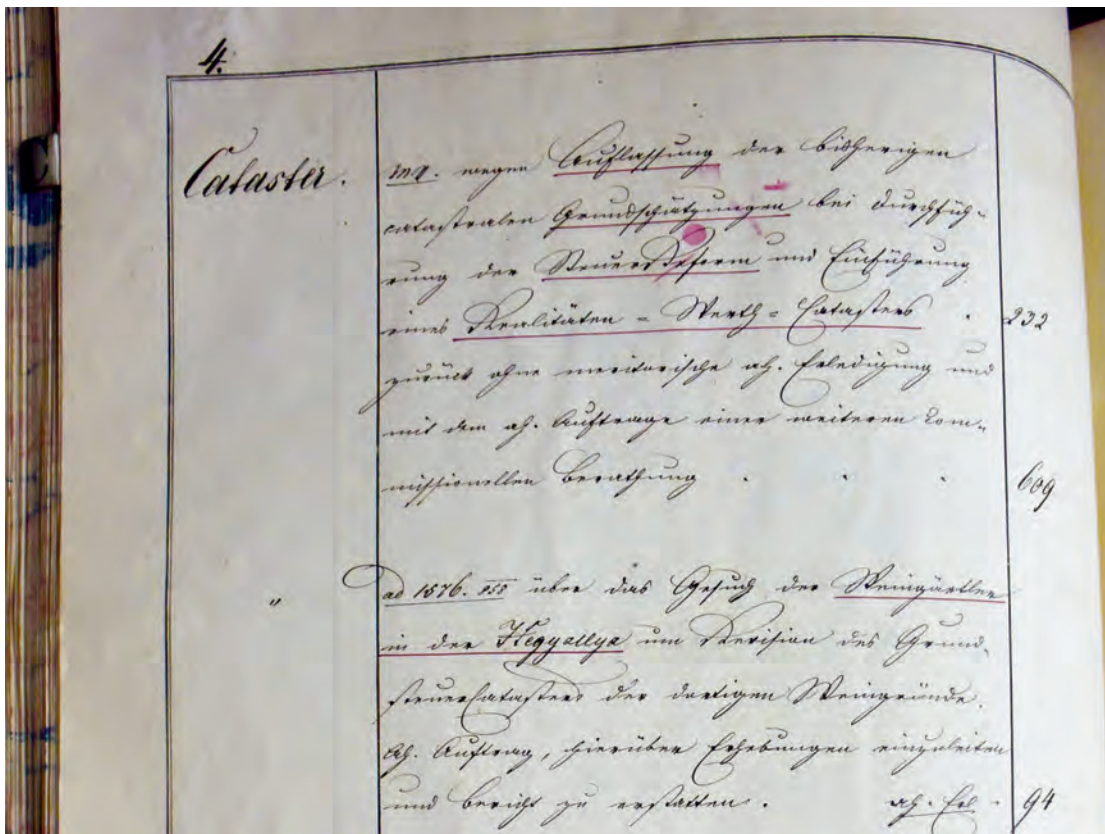 4.
C
Cataster. wegen Auflassung der bisherigen
catastralen Grundschätzungen bei Durchfüh-
rung der SteuerReform und Einführung
eines Realitäten = Werth = Catasters . 232
zurück ohne meritorische ah. Erledigung und
mit dem ah. Auftrage einer weiteren Com-
missionellen Berathung . . . 609
" ad 1576. 855 über das Gesuch der Weingärtler
in der Hegyallya um Revision des Grund-
steuerCatasters der dortigen Weingründe.
Ah. Auftrag, hierüber Erhebungen einzuleiten
und Bericht zu erstatten. ah. Erl. 94